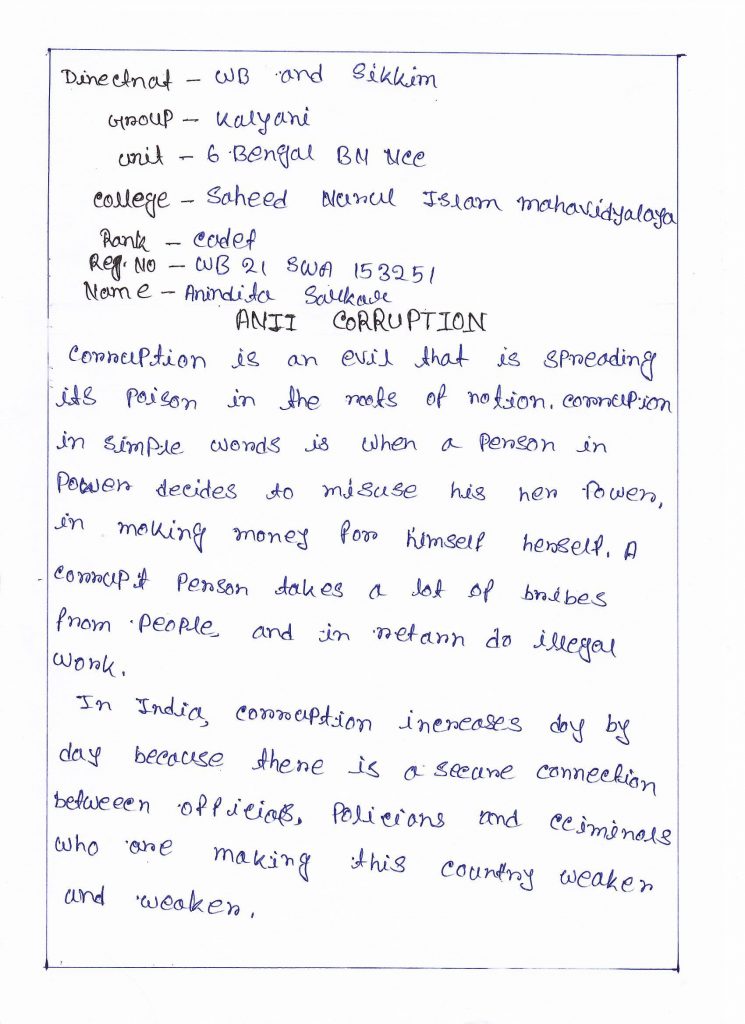 Directnat - WB and Sikkim
Group - Kalyani
unit - 6 Bengal BN NCC
college - Saheed Nurul Islam mahavidyalaya
Rank - cadet
Reg. No - WB 21 SWA 153251
Name - Anindita Sarkar
ANTI CORRUPTION
Corruption is an evil that is spreading
its poison in the roots of nation. corrupion
in simple words is when a person in
power decides to misuse his her Power,
in making money for himself herself. A
corrupt person takes a lot of bribes
from people, and in return do illegal
work.
In India, corruption increases day by
day because there is a secure connection
betweeen officials, Policians and cciminals
who are making this country weaker
and weaker.